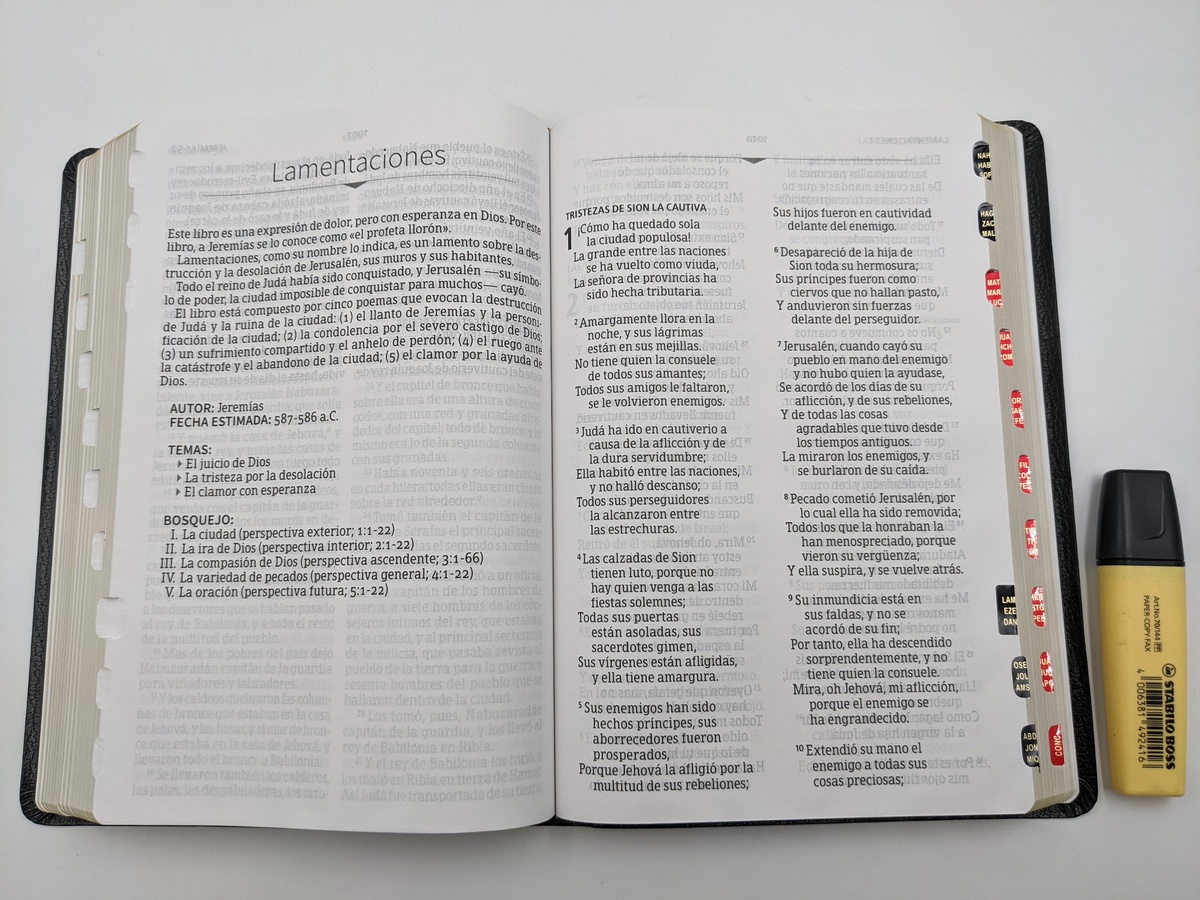 Lamentaciones
Este libro es una expresión de dolor, pero con esperanza en Dios. Por este
libro, a Jeremías se lo conoce como «el profeta llorón».
Lamentaciones, como su nombre lo indica, es un lamento sobre la des-
trucción y la desolación de Jerusalén, sus muros y sus habitantes.
Todo el reino de Judá había sido conquistado, y Jerusalén —su símbo-
lo de poder, la ciudad imposible de conquistar para muchos— cayó.
El libro está compuesto por cinco poemas que evocan la destrucción
de Judá y la ruina de la ciudad: (1) el llanto de Jeremías y la personi-
ficación de la ciudad; (2) la condolencia por el severo castigo de Dios;
(3) un sufrimiento compartido y el anhelo de perdón; (4) el ruego ante
la catástrofe y el abandono de la ciudad; (5) el clamor por la ayuda de
Dios.
AUTOR: Jeremías
FECHA ESTIMADA: 587-586 a.C.
TEMAS:
El juicio de Dios
La tristeza por la desolación
El clamor con esperanza
BOSQUEJO:
I. La ciudad (perspectiva exterior; 1:1-22)
II. La ira de Dios (perspectiva interior; 2:1-22)
III. La compasión de Dios (perspectiva ascendente; 3:1-66)
IV. La variedad de pecados (perspectiva general; 4:1-22)
V. La oración (perspectiva futura; 5:1-22)
TRISTEZAS DE SION LA CAUTIVA
1 ¡Cómo ha quedado sola
la ciudad populosa!
La grande entre las naciones
se ha vuelto como viuda,
La señora de provincias ha
sido hecha tributaria.
2 Amargamente llora en la
noche, y sus lágrimas
están en sus mejillas.
No tiene quien la consuele
de todos sus amantes;
Todos sus amigos le faltaron,
se le volvieron enemigos.
3 Judá ha ido en cautiverio a
causa de la aflicción y de
la dura servidumbre;
Ella habitó entre las naciones,
y no halló descanso;
Todos sus perseguidores
la alcanzaron entre
las estrechuras.
4 Las calzadas de Sion
tienen luto, porque no
hay quien venga a las
fiestas solemnes;
Todas sus puertas
están asoladas, sus
sacerdotes gimen,
Sus vírgenes están afligidas,
y ella tiene amargura.
5 Sus enemigos han sido
hechos príncipes, sus
aborrecedores fueron
prosperados,
Porque Jehová la afligió por la
multitud de sus rebeliones;
Sus hijos fueron en cautividad
delante del enemigo.
6 Desapareció de la hija de
Sion toda su hermosura;
Sus príncipes fueron como
ciervos que no hallan pasto,
Y anduvieron sin fuerzas
delante del perseguidor.
7 Jerusalén, cuando cayó su
pueblo en mano del enemigo
y no hubo quien la ayudase,
Se acordó de los días de su
aflicción, y de sus rebeliones,
Y de todas las cosas
agradables que tuvo desde
los tiempos antiguos.
La miraron los enemigos, y
se burlaron de su caída.
8 Pecado cometió Jerusalén, por
lo cual ella ha sido removida;
Todos los que la honraban la
han menospreciado, porque
vieron su vergüenza;
Y ella suspira, y se vuelve atrás.
9 Su inmundicia está en
sus faldas, y no se
acordó de su fin;
Por tanto, ella ha descendido
sorprendentemente, y no
tiene quien la consuele.
Mira, oh Jehová, mi aflicción,
porque el enemigo se
ha engrandecido.
10 Extendió su mano el
enemigo a todas sus
cosas preciosas;
NAH
HAB
SOF
HAG
ZAC
MAL
MAT
MAR
LUC
LAM
EZE
DAN
OSE
JOL
AMS
ABD
JON
MIQ
CONC
Art.No.70/144
PAPER COPY FAX
STABILO BOSS
4 006381 492416